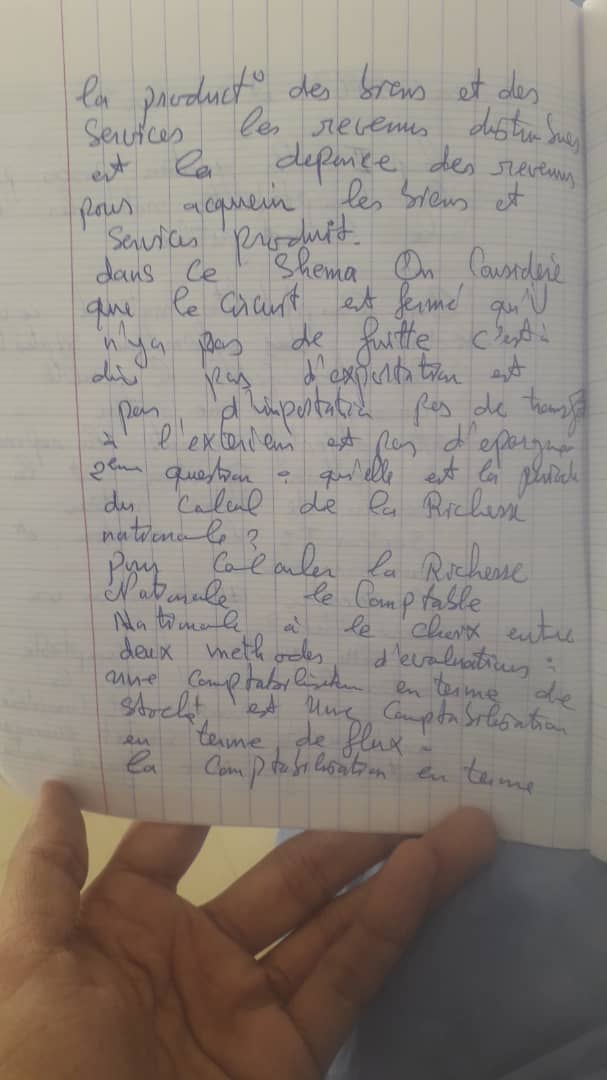 la product° des biens et des
Services les revenus distribues
est la depence des revenus
pour acquerir les biens et
Services produit.
dans ce Shema On Considere
que le Circuit est fermé qu'il
n'ya pas de fuitte c'est à
dire pas d'exportation est
pas d'importation pas de transfert
à l'exterieur est pas d'epargne
2ème question : qu'elle est la
du Calcul de la Richesse
nationale ?
Pour Calculer la Richesse
Nationale le Comptable
Nationale à le choix entre
deux methodes d'evaluations :
une Comptabilisation en terme de
Stock est une Comptabilisation
en terme de flux -
la Comptabilisation en terme